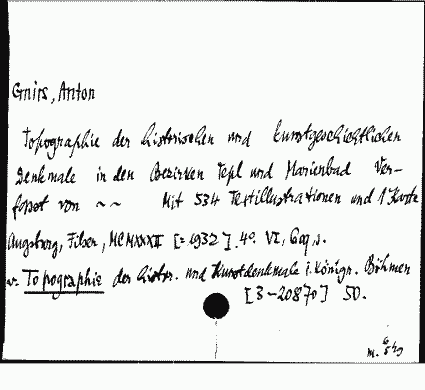 Gnirs, Anton
Topographie der historischen und kunstgeschichtlichen
Denkmale in den Bezirken Tepl und Marienbad Ver-
fasst von ~~ Mit 534 Textillustrationen und 1 Karte
Augsburg, Filser, MCMXXXII [=1932]. 4º. VI, 609 s.
v. Topographie der histor. und Kunstdenkmale i. Königr. Böhmen
[3-20870] 50.